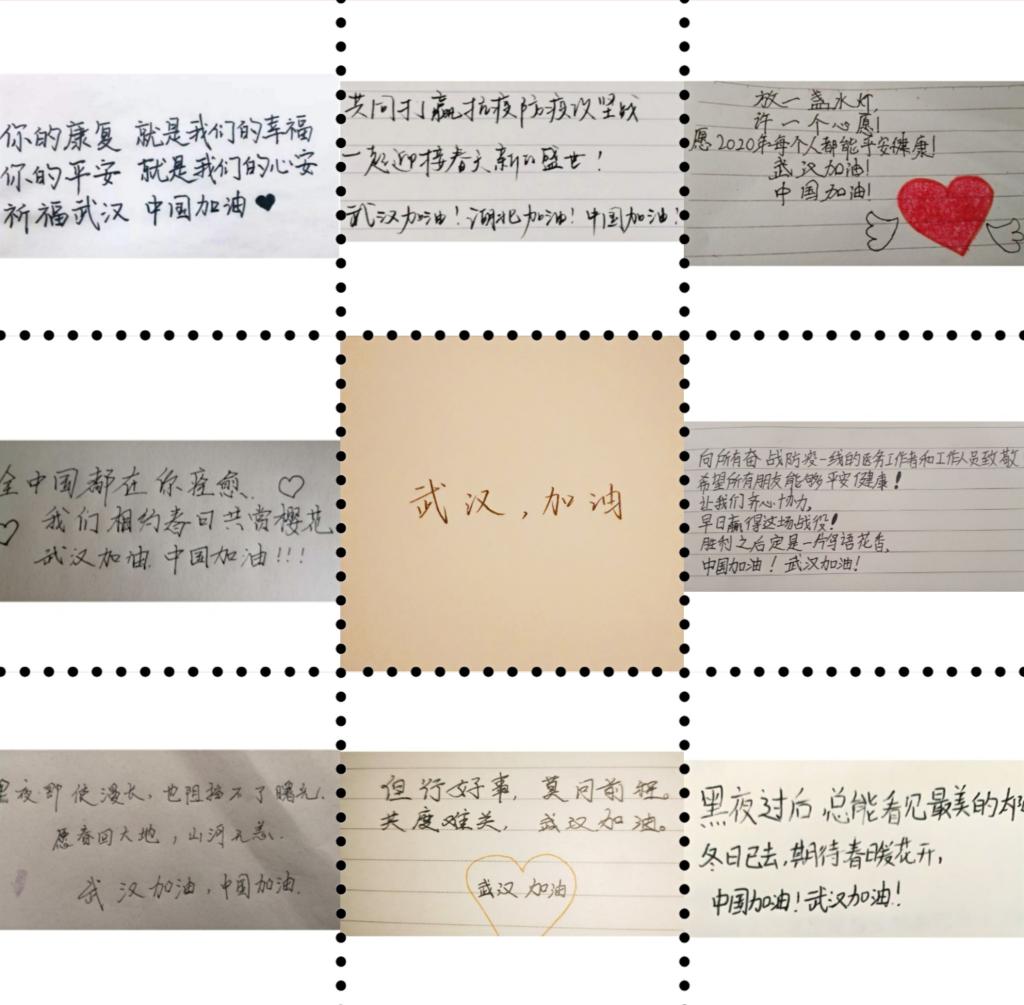 你的康复 就是我们的幸福
你的平安 就是我们的心安
祈福武汉 中国加油
共同打赢抗疫防疫攻坚战
一起迎接春天新的盛世!
武汉加油!湖北加油!中国加油!
放一盏水灯,
许一个心愿!
愿2020年每个人都能平安健康!
武汉加油!
中国加油!
全中国都在你痊愈
我们相约春日共赏樱花
武汉加油 中国加油!!!
武汉,加油
向所有奋战防疫一线的医务工作者和工作人员致敬
希望所有朋友能够平安健康!
让我们齐心协力,
早日赢得这场战役!
胜利之后定是一片鸟语花香,
中国加油!武汉加油!
黑夜即使漫长,也阻挡不了曙光.
愿春回大地,山河无恙.
武汉加油,中国加油.
但行好事,莫问前程。
共度难关,武汉加油。
武汉 加油
黑夜过后,总能看见最美的
冬日已去,期待春暖花开,
中国加油!武汉加油!